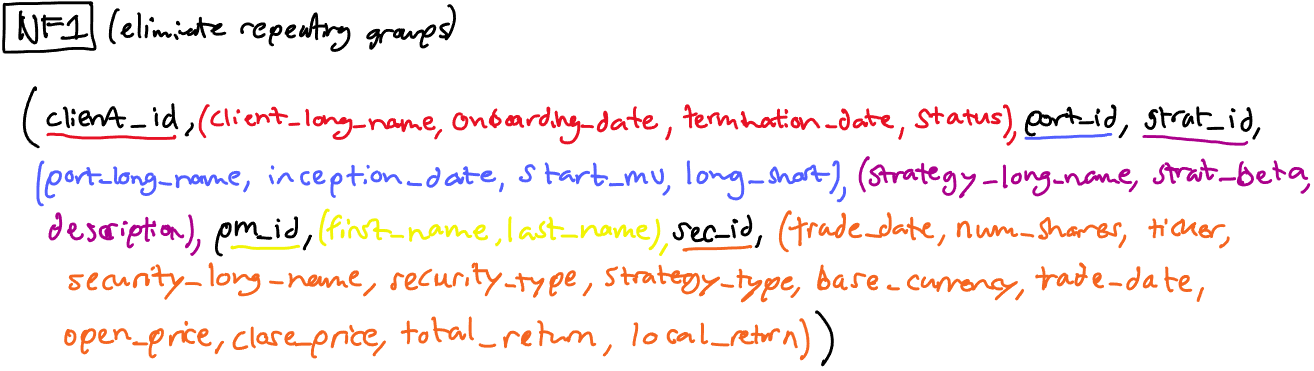 NF1 (eliminate repeating groups)
(client_id, (client_long_name, onboarding_date, termination_date, status), port_id, strat_id,
(port_long_name, inception_date, start_mv, long_short), (strategy_long_name, strat_beta,
description), pm_id, (first_name, last_name), sec_id, (trade_date, num_shares, ticker,
security_long_name, security_type, strategy_type, base_currency, trade_date,
open_price, close_price, total_return, local_return))